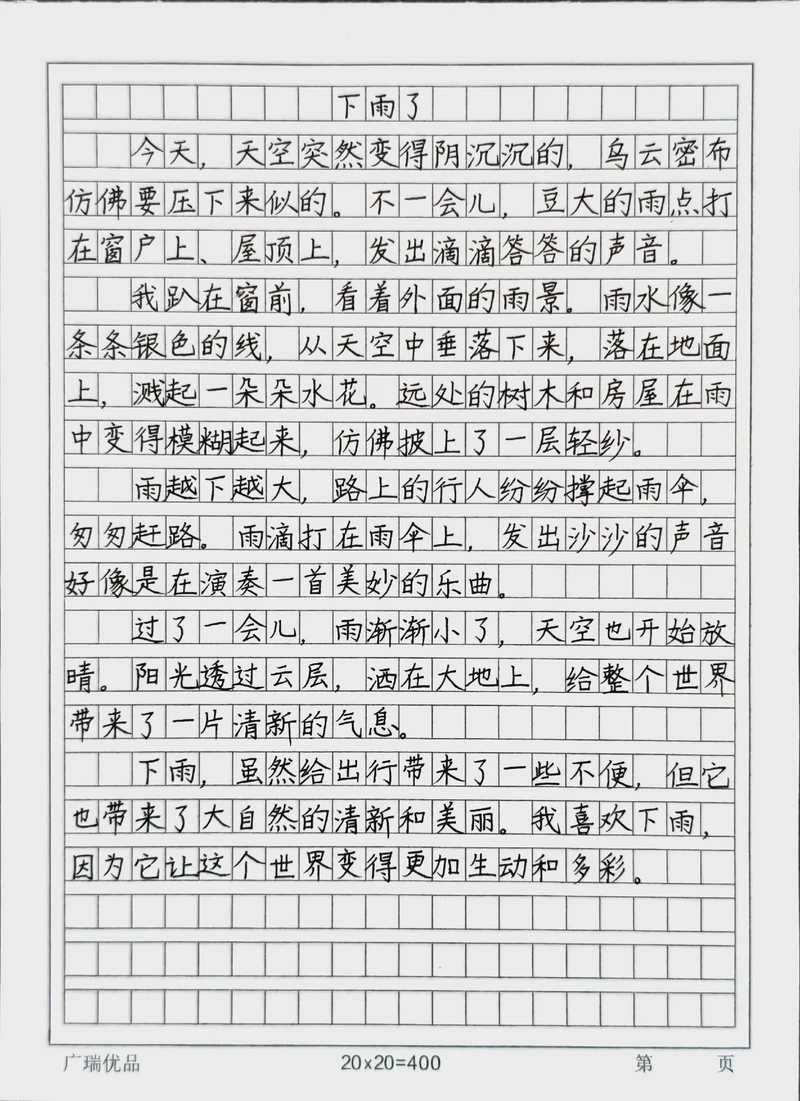 下雨了
今天，天空突然变得阴沉沉的，乌云密布
仿佛要压下来似的。不一会儿，豆大的雨点打
在窗户上、屋顶上，发出滴滴答答的声音。
我趴在窗前，看着外面的雨景。雨水像一
条条银色的线，从天空中垂落下来，落在地面
上，溅起一朵朵水花。远处的树木和房屋在雨
中变得模糊起来，仿佛披上了一层轻纱。
雨越下越大，路上的行人纷纷撑起雨伞，
匆匆赶路。雨滴打在雨伞上，发出沙沙的声音
好像是在演奏一首美妙的乐曲。
过了一会儿，雨渐渐小了，天空也开始放
晴。阳光透过云层，洒在大地上，给整个世界
带来了一片清新的气息。
下雨，虽然给出行带来了一些不便，但它
也带来了大自然的清新和美丽。我喜欢下雨，
因为它让这个世界变得更加生动和多彩。
广瑞优品 20×20=400 第 页